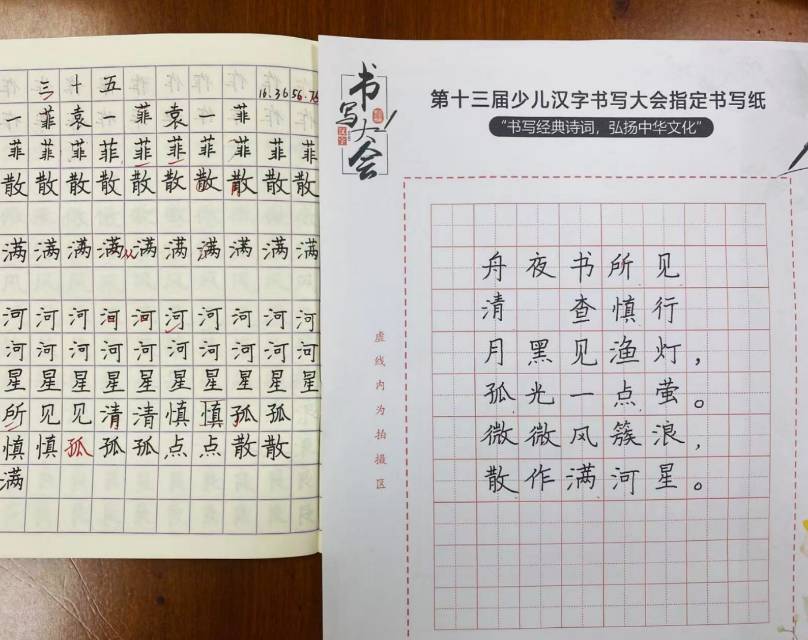 三 十 五 16.36 56.76
一 菲 袁 一 菲 袁 一 菲
菲 菲 菲 菲 菲 菲 菲 菲 菲 菲
散 散 散 散 散 散 散 散 散 散
满 满 满 满 满 满 满 满 满 满
河 河 河 河 河 河 河 河 河 河
河 河 河 河 河 河 河 河 河 河
星 星 星 星 星 星 星 星 星 星
所 见 见 清 清 慎 慎 孤 孤
慎 慎 孤 孤 孤 点 点 散 散
满
书写大会
汉字
第十三届少儿汉字书写大会指定书写纸
“书写经典诗词，弘扬中华文化”
虚线内为拍摄区
舟夜书所见
清 查慎行
月黑见渔灯，
孤光一点萤。
微微风簇浪，
散作满河星。